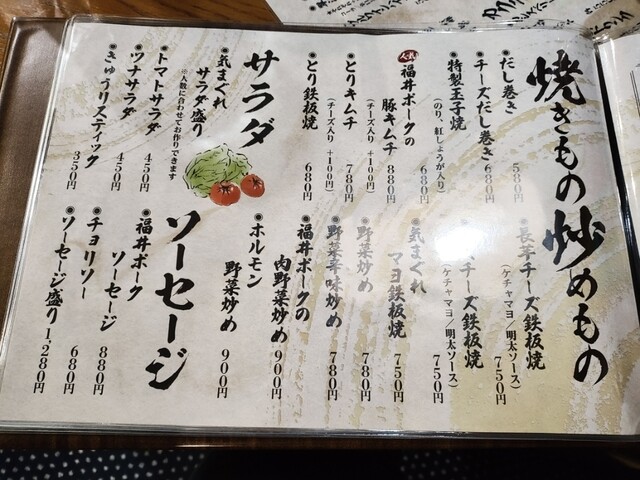 焼きもの炒めもの
●だし巻き 580円
●チーズだし巻き 680円
●特製玉子焼
(のり、紅しょうが入り) 680円
●福井ポークの
豚キムチ 880円
(チーズ入り +100円)
●とりキムチ 780円
(チーズ入り +100円)
●とり鉄板焼 680円
●長芋チーズ鉄板焼
(ケチャマヨ/明太ソース) 750円
チーズ鉄板焼
(ケチャマヨ/明太ソース) 750円
●気まぐれ
マヨ鉄板焼 750円
●野菜炒め 780円
●野菜辛味炒め 780円
●福井ポークの
肉野菜炒め 900円
●ホルモン
野菜炒め 900円
サラダ
●気まぐれ
サラダ盛り
※人数に合わせてお作りできます
●トマトサラダ 450円
●ツナサラダ 450円
●きゅうりスティック 350円
ソーセージ
●福井ポーク
ソーセージ 880円
●チョリソー 680円
●ソーセージ盛り 1,280円